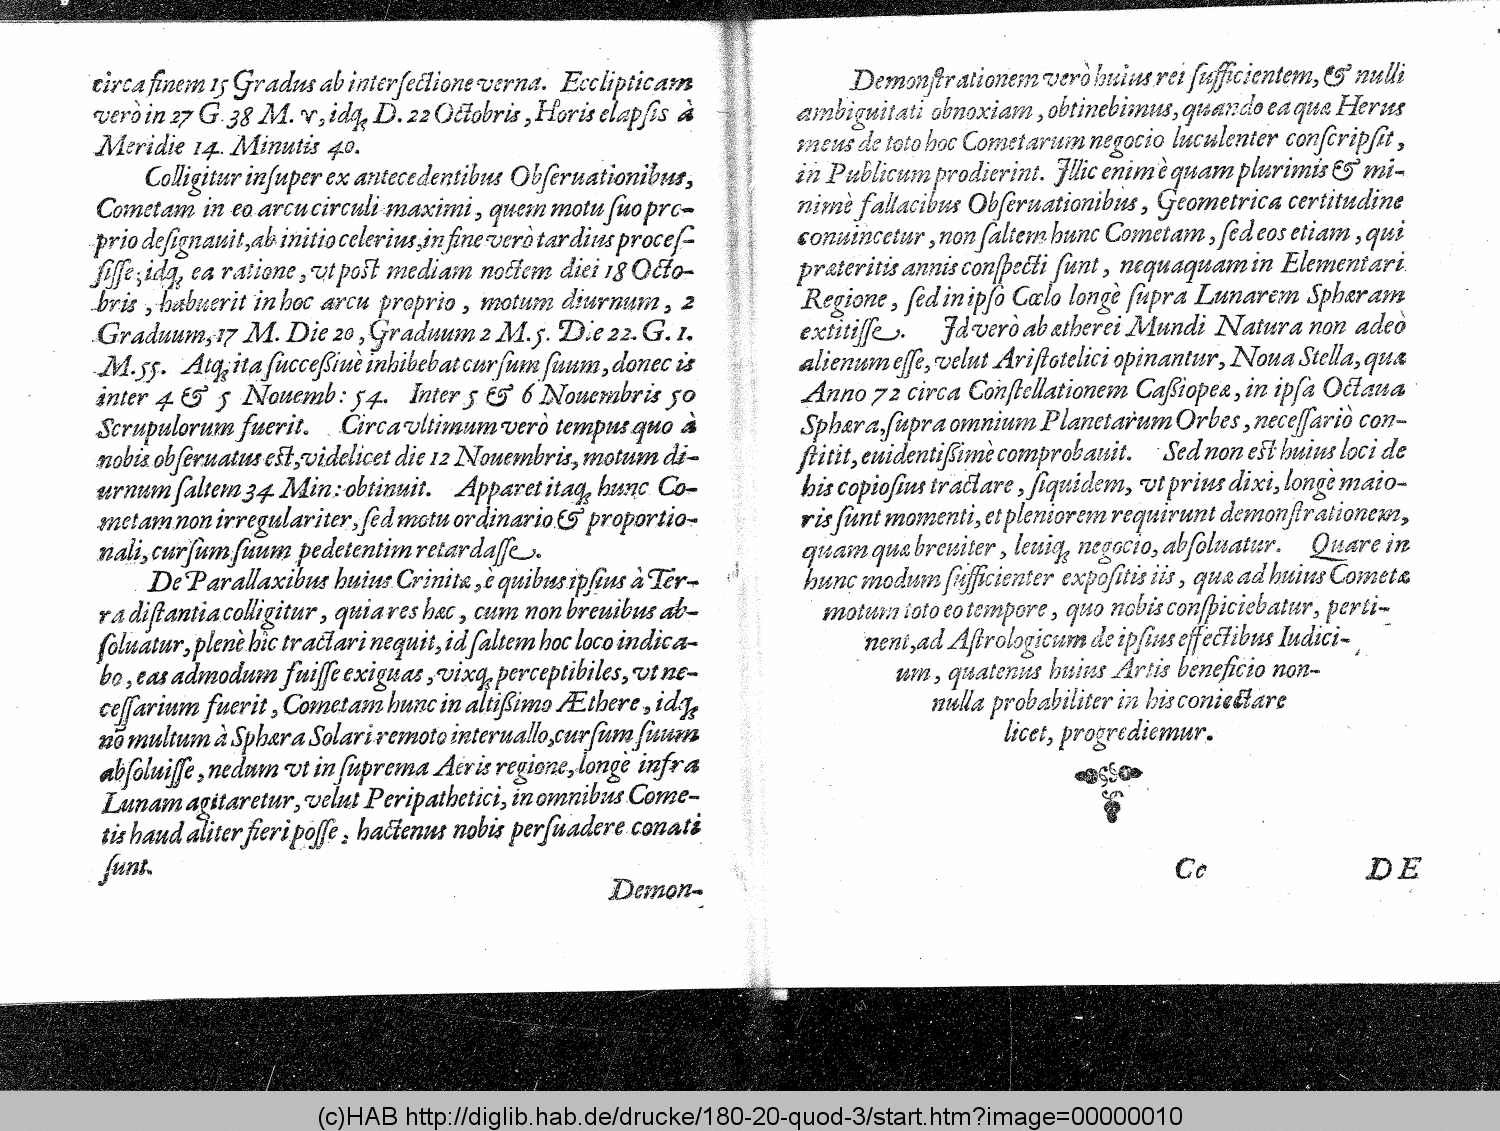 circa finem 15 Gradus ab intersectione verna. Ecclipticam
verò in 27 G. 38 M. ♈, idq́ꝫ D. 22 Octobris, Horis elapsis à
Meridie 14. Minutis 40.
Colligitur insuper ex antecedentibus Obseruationibus,
Cometam in eo arcu circuli maximi, quem motu suo pro-
prio designauit, ab initio celerius, in fine verò tardius proces-
sisse, idq́ꝫ ea ratione, vt post mediam noctem diei 18 Octo-
bris, habuerit in hoc arcu proprio, motum diurnum, 2
Graduum, 17 M. Die 20, Graduum 2 M. 5. Die 22. G. 1.
M. 55. Atq́ꝫ ita successiuè inhibebat cursum suum, donec is
inter 4 & 5 Nouemb: 54. Inter 5 & 6 Nouembris 50
Scrupulorum fuerit. Circa vltimum verò tempus quo à
nobis obseruatus est, videlicet die 12 Nouembris, motum di-
urnum saltem 34 Min: obtinuit. Apparet itaq́ꝫ hunc Co-
metam non irregulariter, sed motu ordinario & proportio-
nali, cursum suum pedetentim retardasse.
De Parallaxibus huius Crinitæ, è quibus ipsius à Ter-
ra distantia colligitur, quia res hæc, cum non breuibus ab-
soluatur, plenè hîc tractari nequit, id saltem hoc loco indica-
bo, eas admodum fuisse exiguas, vixq́ꝫ perceptibiles, vt ne-
cessarium fuerit, Cometam hunc in altissimo Æthere, idq́ꝫ
nō multum à Sphæra Solari remoto interuallo, cursum suum
absoluisse, nedum vt in suprema Aeris regione, longè infra
Lunam agitaretur, velut Peripathetici, in omnibus Come-
tis haud aliter fieri posse, hactenus nobis persuadere conati
sunt.
Demon-
Demonstrationem verò huius rei sufficientem, & nulli
ambiguitati obnoxiam, obtinebimus, quando ea quæ Herus
meus de toto hoc Cometarum negocio luculenter conscripsit,
in Publicum prodierint. Illic enim è quam plurimis & mi-
nimè fallacibus Obseruationibus, Geometrica certitudine
conuincetur, non saltem hunc Cometam, sed eos etiam, qui
præteritis annis conspecti sunt, nequaquam in Elementari
Regione, sed in ipso Cœlo longè supra Lunarem Sphæram
extitisse. Id verò ab ætherei Mundi Natura non adeò
alienum esse, velut Aristotelici opinantur, Noua Stella, quæ
Anno 72 circa Constellationem Cassiopeæ, in ipsa Octaua
Sphæra, supra omnium Planetarum Orbes, necessariò con-
stitit, euidentissimè comprobauit. Sed non est huius loci de
his copiosius tractare, siquidem, vt prius dixi, longè maio-
ris sunt momenti, et pleniorem requirunt demonstrationem,
quam quæ breuiter, leuiq́ꝫ negocio, absoluatur. Quare in
hunc modum sufficienter expositis iis, quæ ad huius Cometæ
motum toto eo tempore, quo nobis conspiciebatur, perti-
nent, ad Astrologicum de ipsius effectibus Iudici-
um, quatenus huius Artis beneficio non-
nulla probabiliter in his coniectare
licet, progrediemur.
Cc DE
(c)HAB http://diglib.hab.de/drucke/180-20-quod-3/start.htm?image=00000010